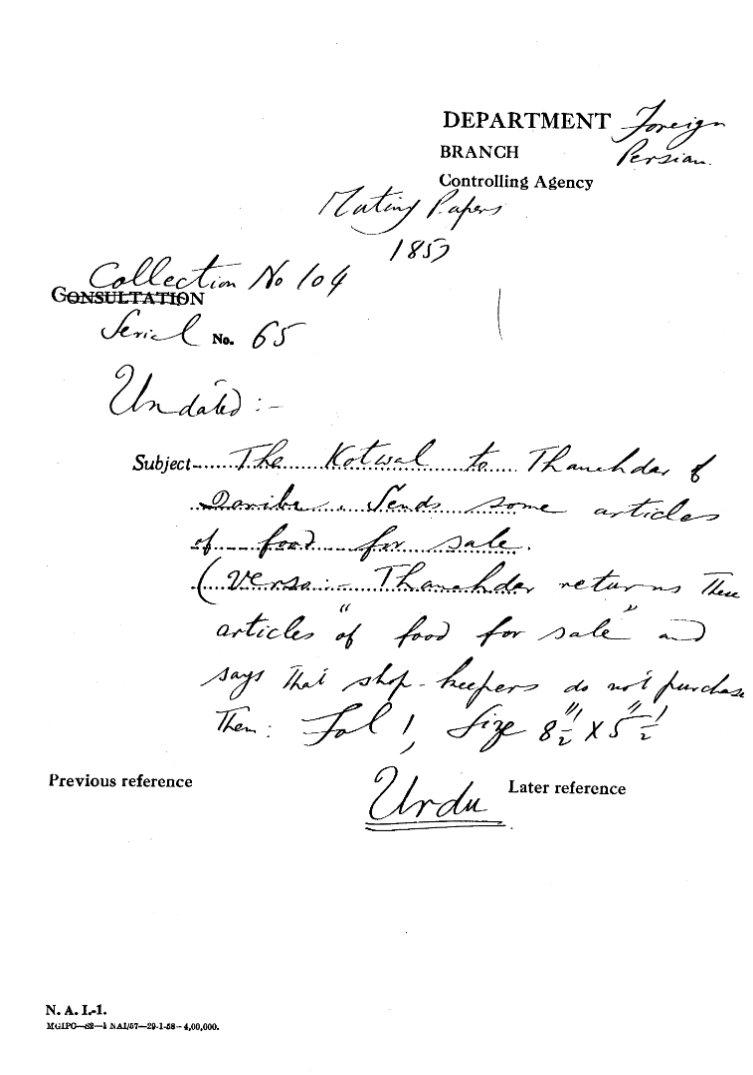 DEPARTMENT Foreign
BRANCH Persian.
Controlling Agency
Mutiny Papers
1857
Collection No 104
CONSULTATION
Serial No. 65
Undated :-
Subject The Kotwal to Thanehdar of
Dariba. Sends some articles
of food for sale.
(Verso :- Thanehdar returns these
articles "of food for sale" and
says that shop-keepers do not purchase
them: Fol 1, Size 8 1/2" X 5 1/2"
Previous reference
Urdu
Later reference
N. A. I.-1.
MGIPC—S2—1 NAI/57—29-1-58—4,00,000.